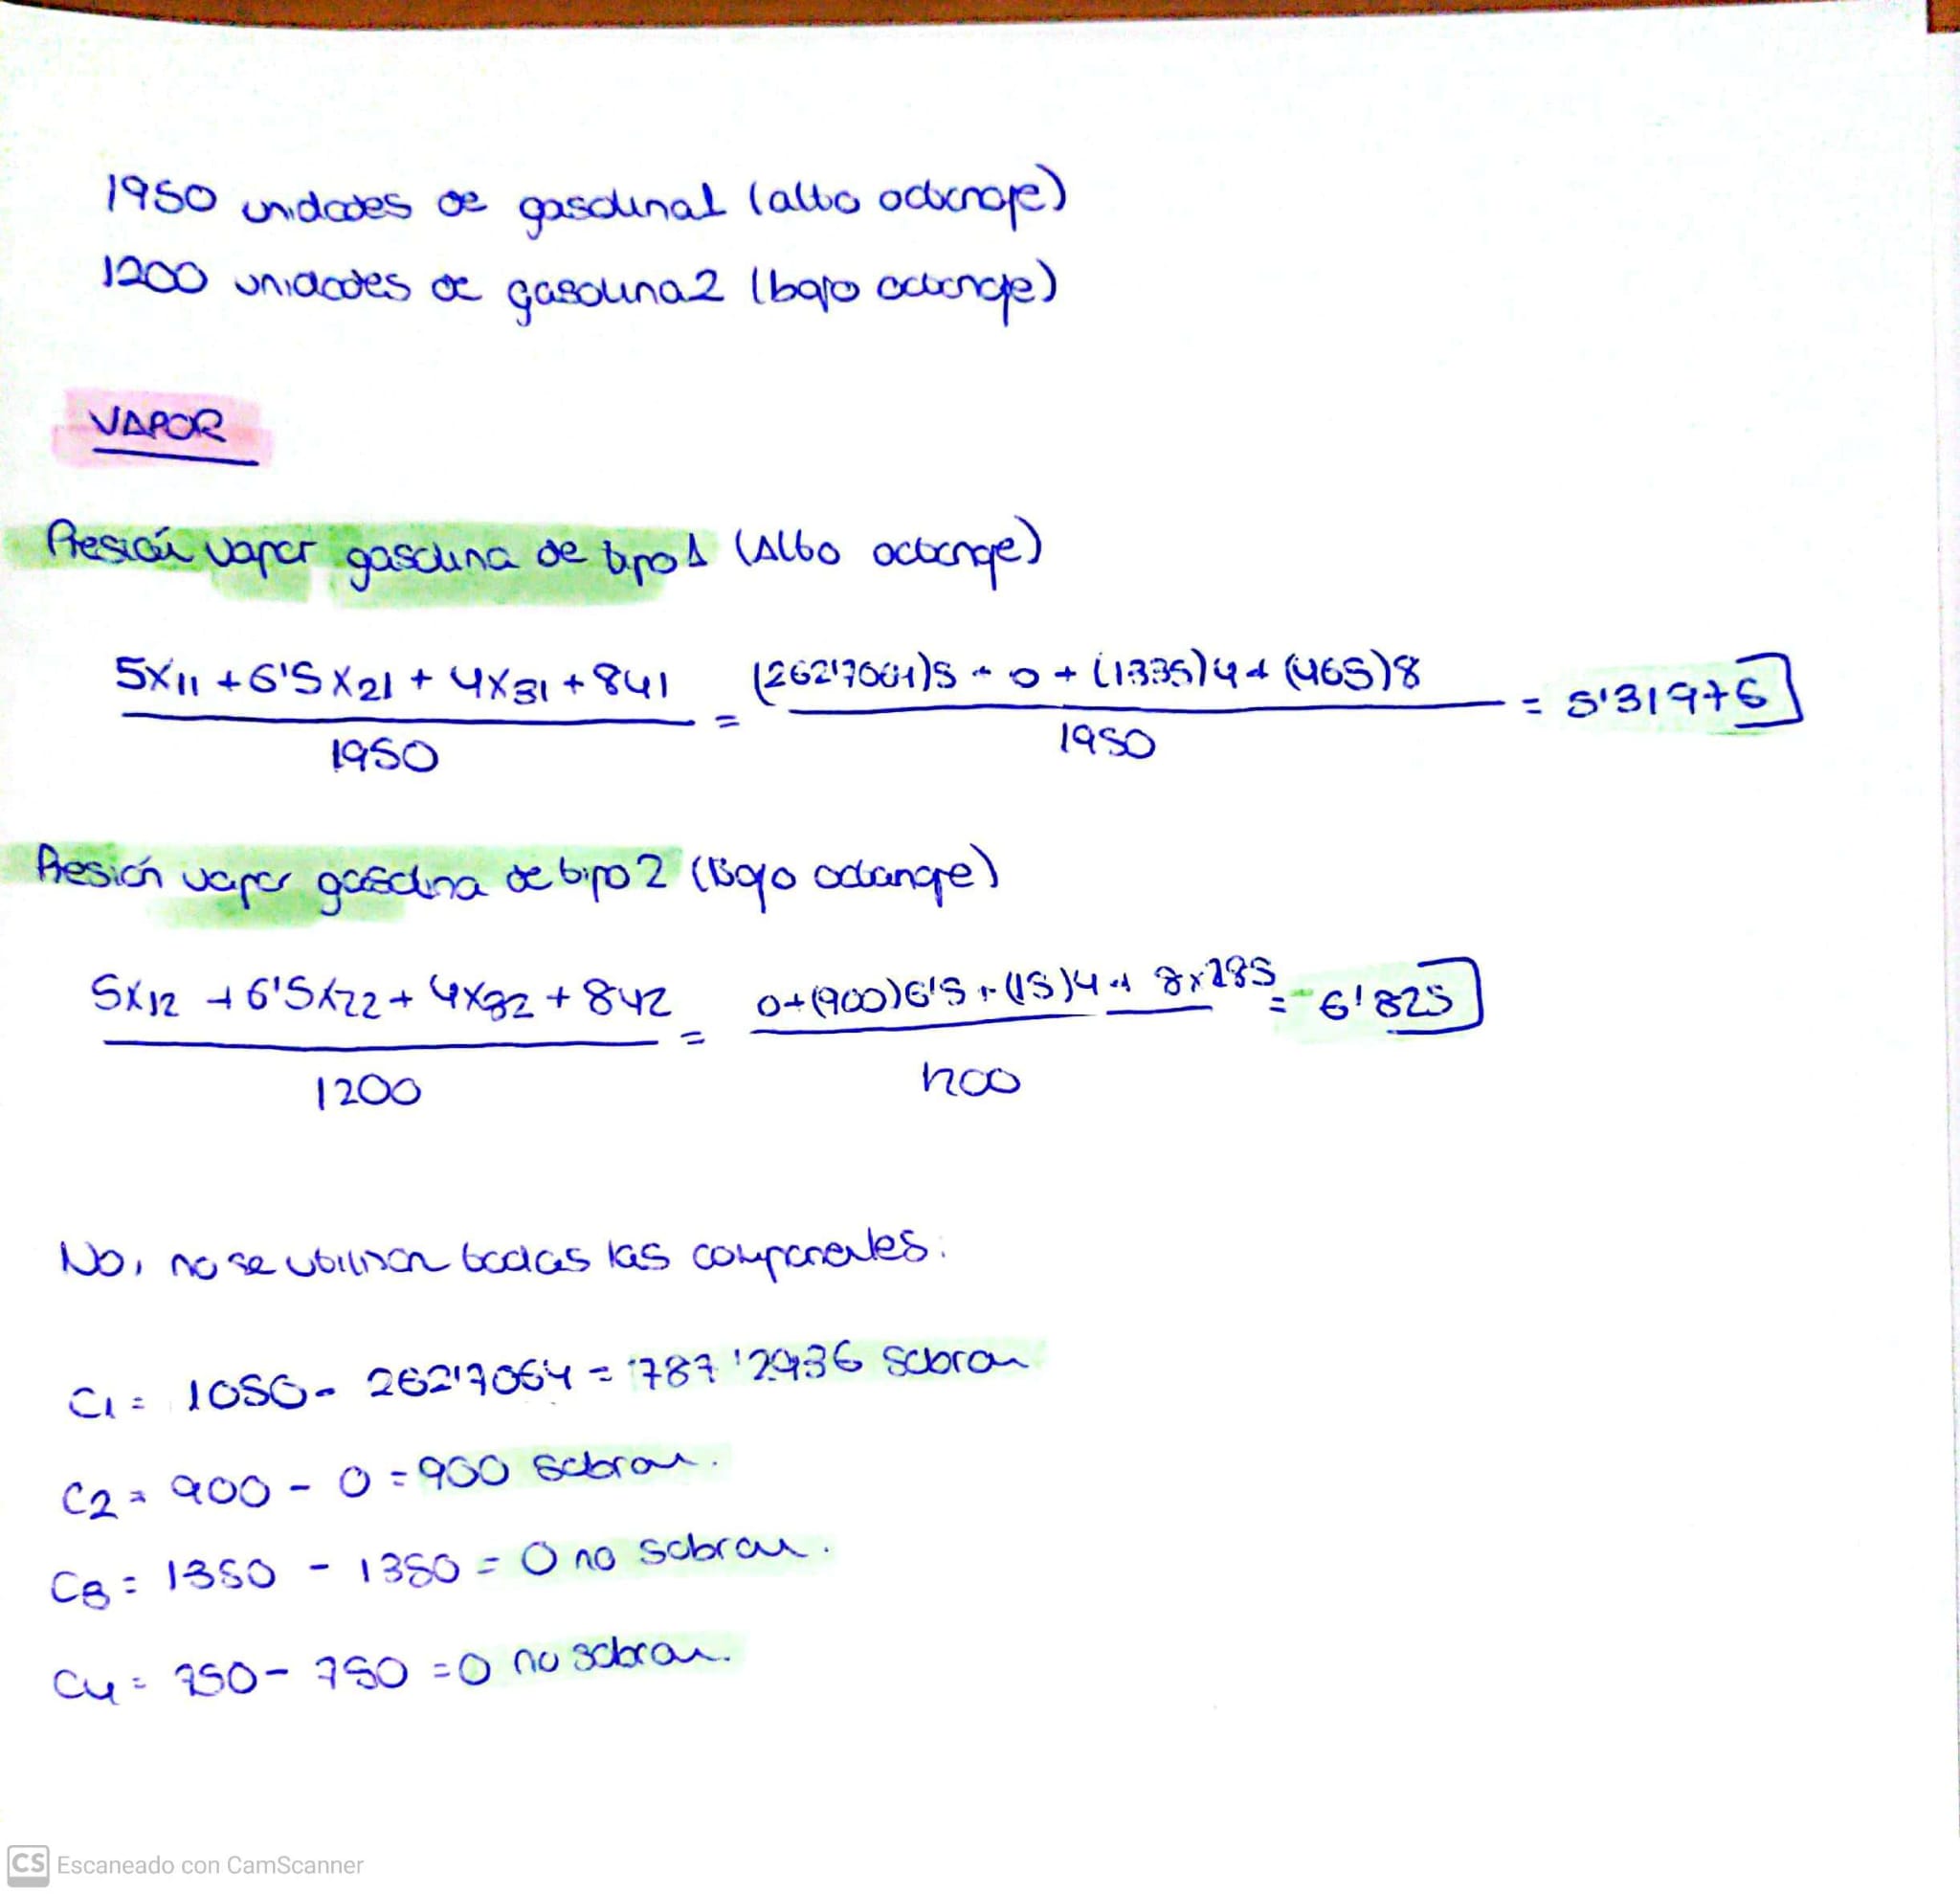 1950 unidades de gasolina1 (alto octanaje)
1200 unidades de gasolina2 (bajo octanaje)
VAPOR
Presión vapor gasolina de tipo1 (Alto octanaje)
5x11 + 6'5x21 + 4x31 + 841 / 1950 = (262'7064)5 + 0 + (1335)4 + (465)8 / 1950 = 5'31975
Presión vapor gasolina de tipo 2 (Bajo octanaje)
5x12 + 6'5x22 + 4x32 + 842 / 1200 = 0+(900)6'5 + (15)4 + 8x285 / 1200 = 6'825
No, no se utilizan todas las componentes.
C1 = 1050 - 262'7064 = 787'2936 sobran
C2 = 900 - 0 = 900 sobran.
C3 = 1350 - 1350 = 0 no sobran.
C4 = 750 - 750 = 0 no sobran.
CS Escaneado con CamScanner